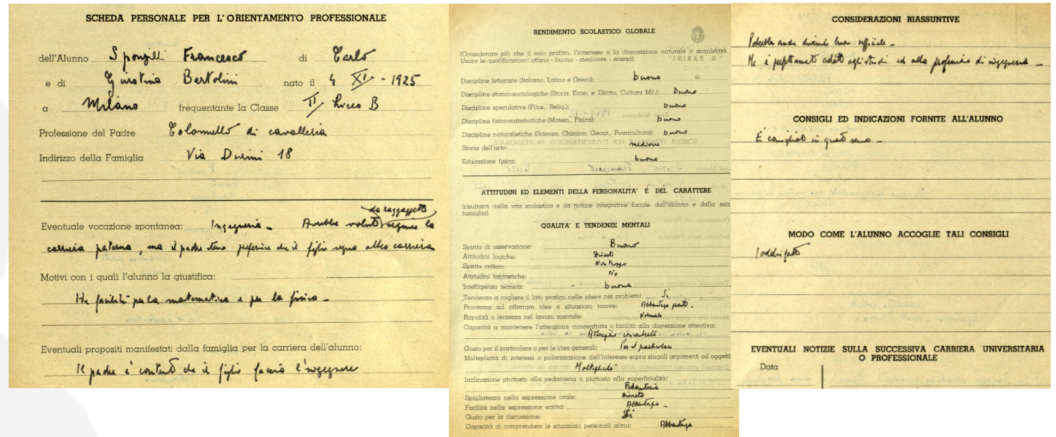 SCHEDA PERSONALE PER L'ORIENTAMENTO PROFESSIONALE
dell'Alunno Sponzilli Francesco di Carlo
e di Giustina Bertolini nato il 4 XI - 1925
a Milano frequentante la Classe II Liceo B
Professione del Padre Colonnello di cavalleria
Indirizzo della Famiglia Via Durini 18
da ragazzetto
Eventuale vocazione spontanea: Ingegneria - Avrebbe voluto seguire la
carriera paterna, ma il padre stesso preferisce che il figlio segua altra carriera
Motivi con i quali l'alunno la giustifica:
Ha facilità per la matematica e per la fisica -
Eventuali propositi manifestati dalla famiglia per la carriera dell'alunno:
Il padre è contento che il figlio faccia l'ingegnere
RENDIMENTO SCOLASTICO GLOBALE
(Considerare più che il solo profitto, l'interesse e la disposizione naturale o acquisita.
Usare le qualificazioni ottimo - buono - mediocre - scarso).
Discipline letterarie (Italiano, Latino e Greco): buono
Discipline storico-sociologiche (Storia, Econ. e Diritto, Cultura Mil.): buono
Discipline speculative (Filos., Relig.): buono
Discipline fisico-matematiche (Matem., Fisica): buono
Discipline naturalistiche (Scienze, Chimica, Geogr., Puericultura): buono
Storia dell'arte: mediocre
Educazione fisica: buono
ATTITUDINI ED ELEMENTI DELLA PERSONALITA' E DEL CARATTERE
(risultanti dalla vita scolastica e da notizie integrative fornite dall'alunno e dalla sua
famiglia).
QUALITA' E TENDENZE MENTALI
Spirito di osservazione: Buono
Attitudini logiche: Discrete
Spirito critico: Non troppo
Attitudini fantastiche: No
Intelligenza tecnica: buona
Tendenza a cogliere il lato pratico nelle idee e nei problemi: Sì
Prontezza ad afferrare idee e situazioni nuove: Abbastanza pronto -
Rapidità o lentezza nel lavoro mentale: Normale
Capacità a mantenere l'attenzione concentrata o facilità alla dispersione attentiva:
Attenzione concentrata
Gusto per il particolare o per le idee generali: Per il particolare
Molteplicità di interessi o polarizzazione dell'interesse sopra singoli argomenti ad oggetti
Molteplicità
Inclinazione piuttosto alla pedanteria o piuttosto alla superficialità:
Pedanteria
Spigliatezza nella espressione orale: Discreta
Facilità nella espressione scritta: Abbastanza -
Gusto per la discussione: Sì
Capacità di comprendere le situazioni personali altrui: Abbastanza
CONSIDERAZIONI RIASSUNTIVE
Potrebbe anche divenire buon ufficiale -
Ma è perfettamente adatto agli studi ed alla professione di ingegnere -
CONSIGLI ED INDICAZIONI FORNITE ALL'ALUNNO
È consigliato in questo senso -
MODO COME L'ALUNNO ACCOGLIE TALI CONSIGLI
Soddisfatto
EVENTUALI NOTIZIE SULLA SUCCESSIVA CARRIERA UNIVERSITARIA
O PROFESSIONALE
Data